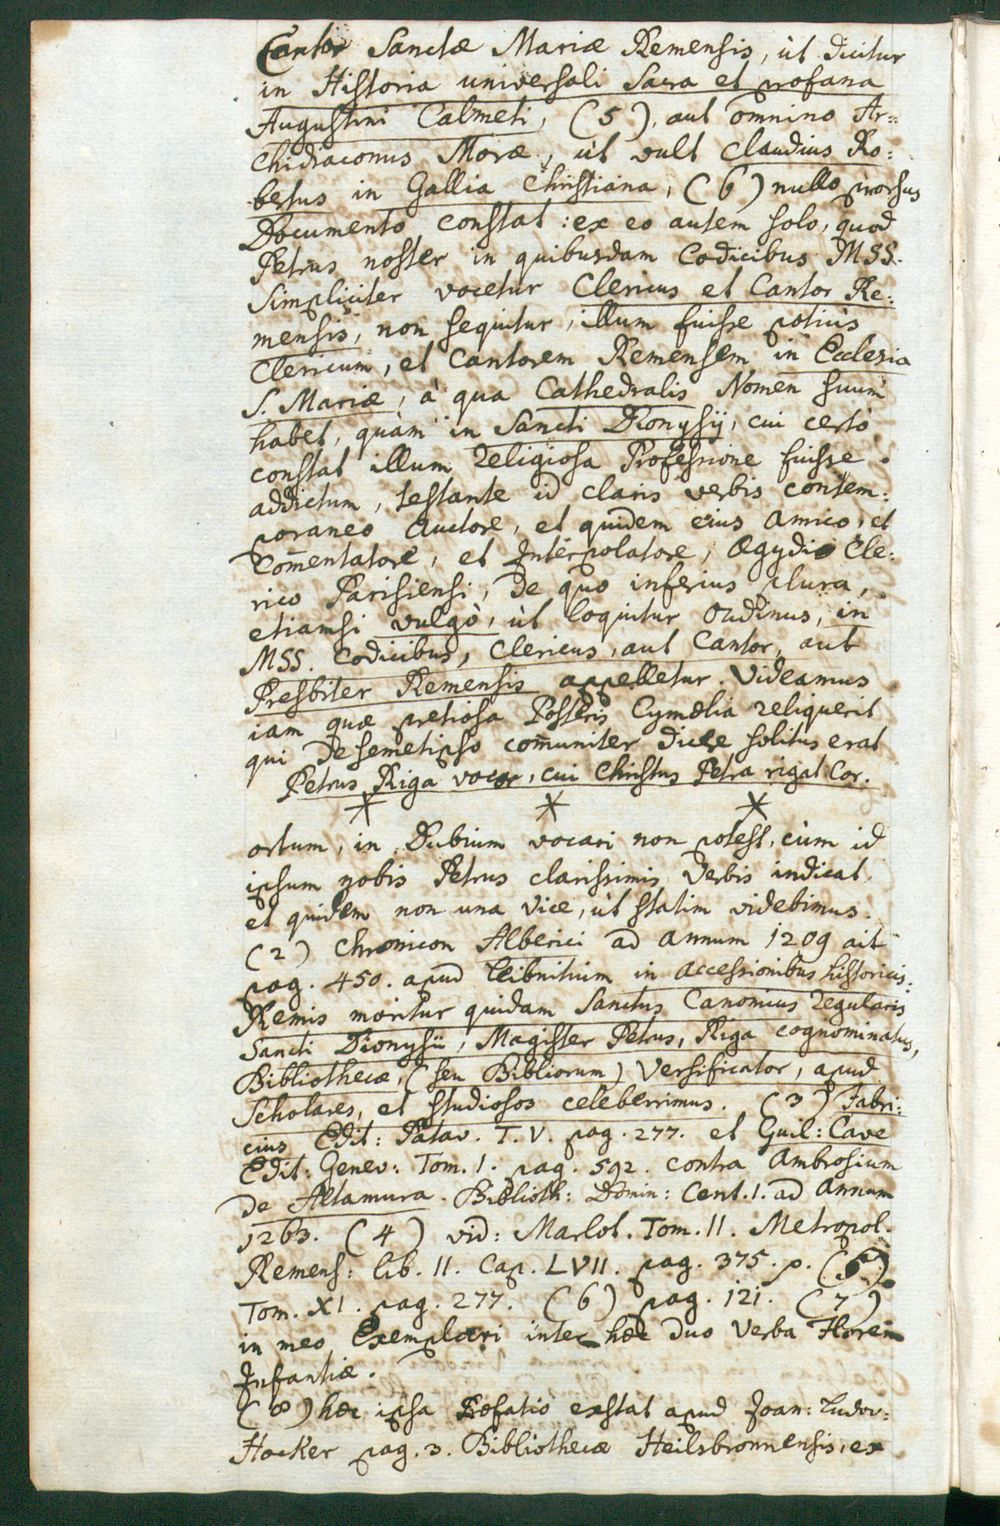 Cantor Sanctæ Mariæ Remensis, ùt dicitur
in Historia universali Sacra et profana
Augustini Calmeti, (5), aut omnino Ar=
chidiaconus Moræ, ùt vult Claudius Ro=
bertus in Gallia Christiana, (6) nullo prorsus
Documento constat: ex eo autem solo, quod
Petrus noster in quibusdam Codicibus MSS.
Simpliciter vocetur Clericus et Cantor Re=
mensis, non sequitur, illum fuisse potiùs
Clericum, et Cantorem Remensem in Ecclesia
S. Mariæ, à qua Cathedralis Nomen suum
habet, quàm in Sancti Dionysij, cui certò
constat illum Religiosa Professione fuisse
addictum, testante id claris verbis contem=
poraneo Auctore, et quidem eius Amico, et
Com̄entatore, et Interpolatore, Ægydio Cle=
rico Parisiensi, de quo inferius plura,
etiamsi vulgò, ùt loquitur Oudinus, in
MSS. Codicibus, Clericus, aut Cantor, aut
Presbiter Remensis appelletur. Videamus
iam quæ pretiosa Posteris Cymælia reliquerit
qui de semetipso com̄uniter dicere solitus erat
Petrus Riga vocor, cui Christus Petra rigat Cor.
* * *
ortum, in Dubium vocari non potest, cùm id
ipsum nobis Petrus clarissimis Verbis indicat
et quidem non una Vice, ùt statim videbimus.
(2) Chronicon Alberici ad Annum 1209 ait
pag. 450. apud Leibnitium in accessionibus historicis:
Remis moritur quidam Sanctus Canonicus Regularis
Sancti Dionysii, Magister Petrus, Riga cognominatus,
Bibliothecæ, (seu Bibliorum) Versificator, apud
Scholares, et Studiosos celeberrimus. (3) Fabri=
cius Edit: Patav. T. V. pag. 277. et Guil: Cave
Edit. Genev: Tom. I. pag. 592. contra Ambrosium
de Altamura. Biblioth: Domin: Cent. I. ad Annum
1263. (4) vid: Marlot. Tom. II. Metropol.
Remens: lib. II. Cap. LVII. pag. 375. p. (5)
Tom. XI. pag. 277. (6) pag. 121. (7)
in meo Exemplari inter hæc duo Verba Florem
Infantiæ.
(8) hæc ipsa Præfatio exstat apud Joan: Ludov:
Hocker pag. 3. Bibliothecæ Heilsbronnensis, ex